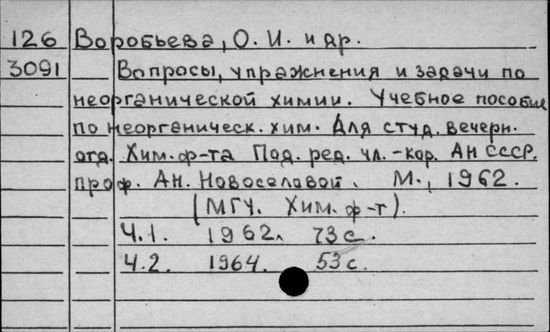 126 Воробьева, О. И. и др.
3091 Вопросы, упражнения и задачи по
неорганической химии. Учебное пособие
по неорганическ. хим. Для студ. вечерн.
отд. Хим. ф-та Под. ред. чл.-кор. АН СССР.
проф. Ан. Новоселовой. М., 1962.
(МГУ. Хим. ф-т).
Ч.1. 1962г. 73 с.
Ч.2. 1964. 53 с.